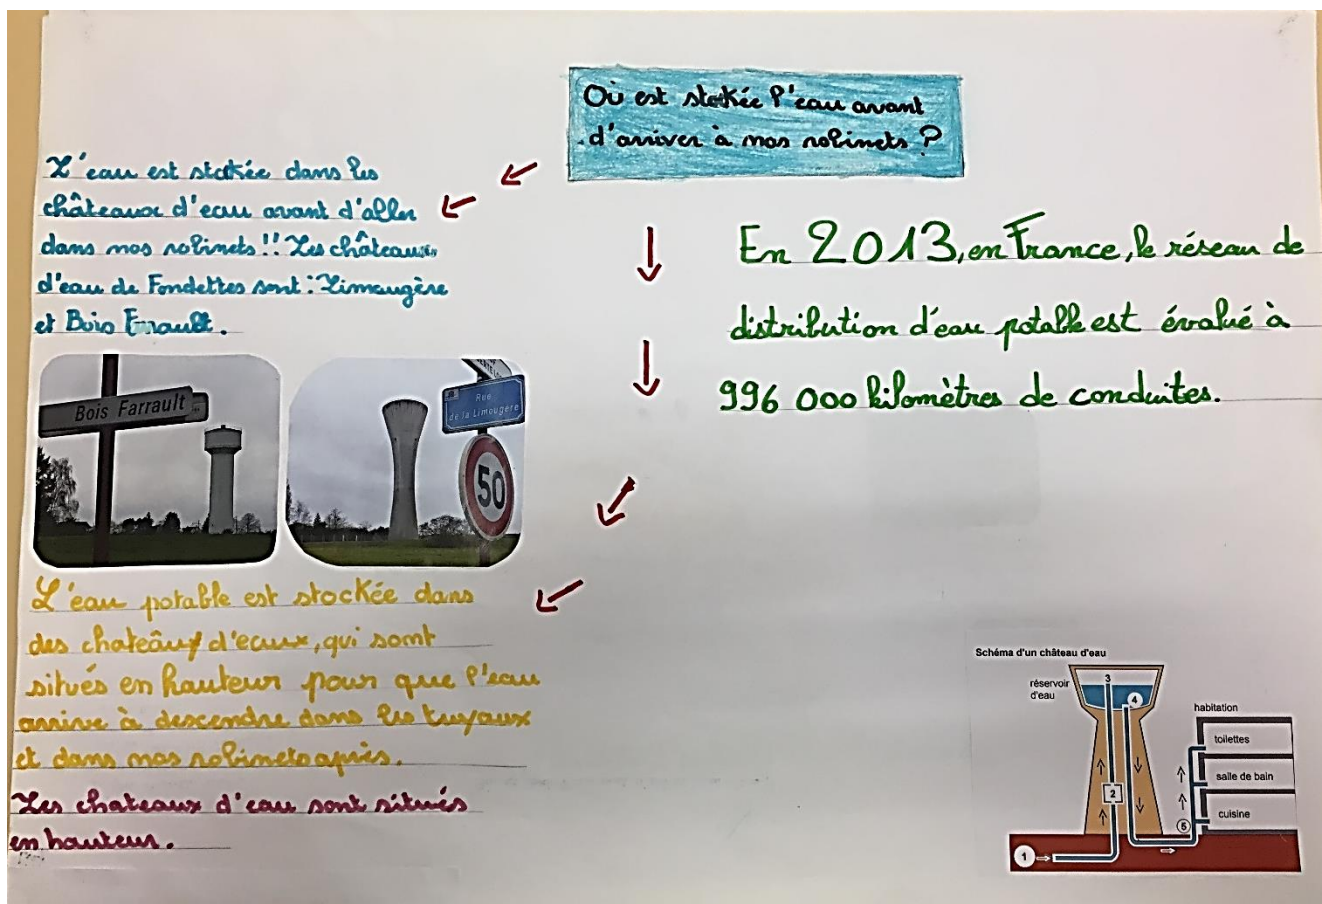 Où est stokée l'eau avant
d'arriver à nos robinets ?
L'eau est stokée dans les
châteaux d'eau avant d'aller
dans nos robinets !! Les châteaux
d'eau de Fondettes sont : Limougère
et Bois
En 2013, en France, le réseau de
distribution d'eau potable est évalué à
996 000 kilomètres de conduites.
Bois Farrault
Rue
de la Limougère
50
L'eau potable est stockée dans
des chateâux d'eaux, qui sont
situés en hauteur pour que l'eau
arrive à descendre dans les tuyaux
et dans nos robinets après.
Les chateaux d'eau sont situés
en hauteur.
Schéma d'un château d'eau
réservoir
d'eau
3
4
habitation
toilettes
salle de bain
2
cuisine
5
1